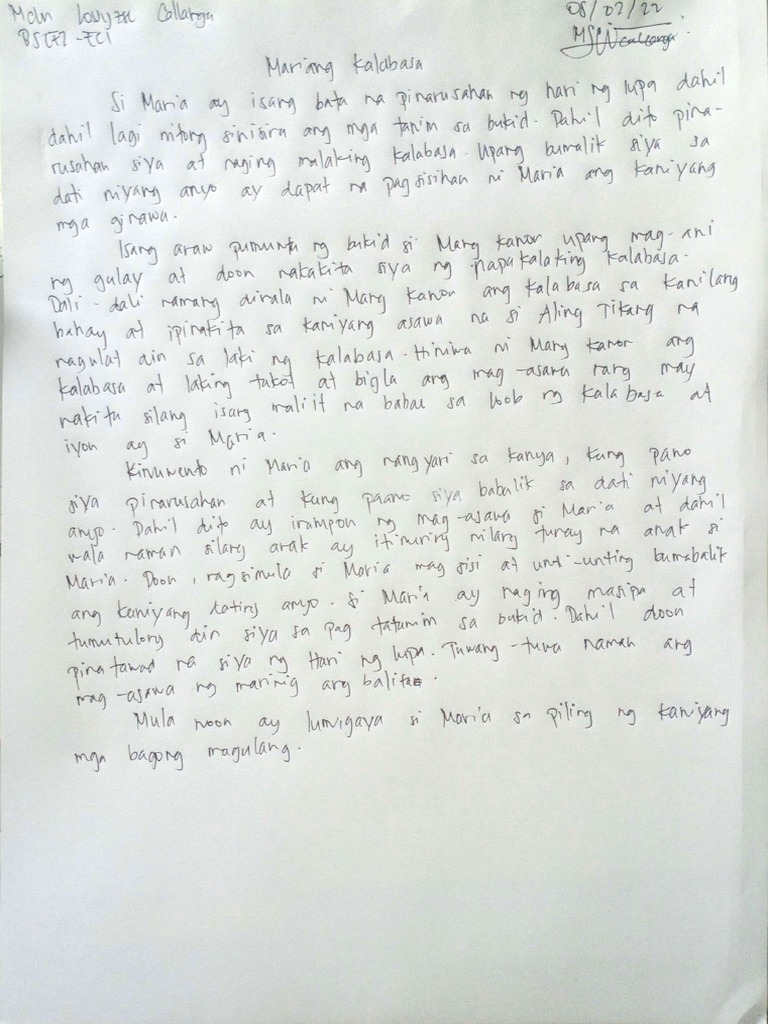 Collarga
08/02/22
Mariang Kalabasa
Si Maria ay isang bata na pinarusahan ng hari ng lupa dahil
dahil lagi nitong sinisira ang mga tanim sa bukid. Dahil dito pina-
rusahan siya at naging malaking kalabasa. Upang bumalik siya sa
dati niyang anyo ay dapat na pagsisihan ni Maria ang kaniyang
mga ginawa.
Isang araw pumunta ng bukid si Mang kanor upang mag-ani
ng gulay at doon nakakita siya ng napakalaking kalabasa.
Dali-dali namang dinala ni Mang kanor ang kalabasa sa kanilang
bahay at ipinakita sa kaniyang asawa na si Aling Tikang na
nagulat din sa laki ng kalabasa. Hiniwa ni Mang kanor ang
kalabasa at laking takot at bigla ang mag-asawa nang may
nakita silang isang maliit na babae sa loob ng kalabasa at
iyon ay si Maria.
Kinuwento ni Maria ang nangyari sa kanya, kung pano
siya pinarusahan at kung paano siya babalik sa dati niyang
anyo. Dahil dito ay inampon ng mag-asawa si Maria at dahil
wala naman silang anak ay itinuring nilang tunay na anak si
Maria. Doon, nagsimula si Maria mag sisi at unti-unting bumabalik
ang kaniyang dating anyo. Si Maria ay naging masipa at
tumutulong din siya sa pag tatanim sa bukid. Dahil doon
pinatawad na siya ng Hari ng lupa. Tuwang-tuwa naman ang
mag-asawa ng marinig ang balita.
Mula noon ay lumigaya si Maria sa piling ng kaniyang
mga bagong magulang.